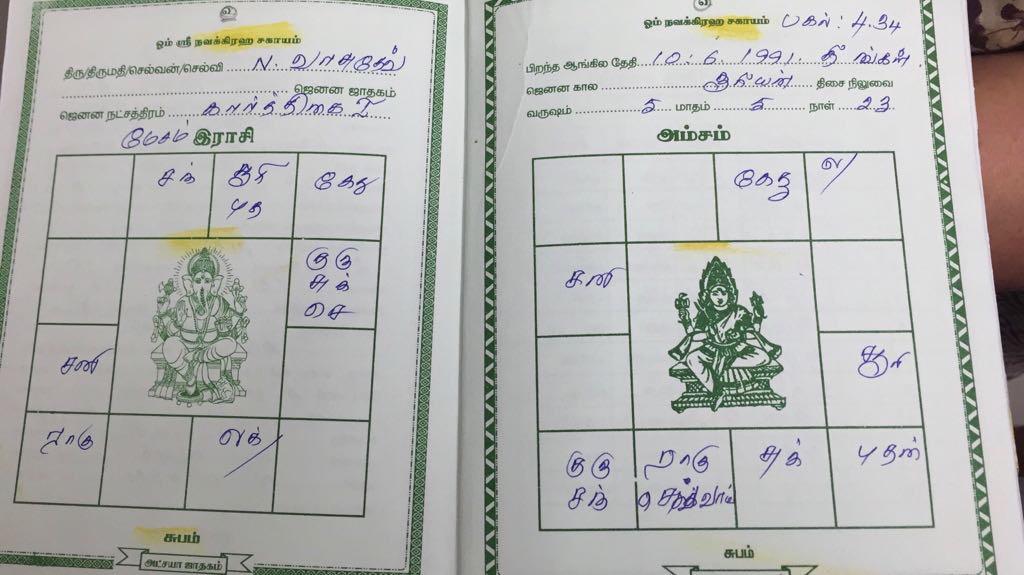 உ
ஓம் ஸ்ரீ நவக்கிரஹ சகாயம்
திரு/திருமதி/செல்வன்/செல்வி N. வாசுதேவ்
ஜெனன ஜாதகம்
ஜெனன நட்சத்திரம் கார்த்திகை I
மேசம் இராசி
சந் சூரி கேது
புத
குரு
சுக்
செ
சனி
ராகு லக்/
சுபம்
அட்சயா ஜாதகம்
உ
ஓம் நவக்கிரஹ சகாயம் பகல் : 4.34
பிறந்த ஆங்கில தேதி 10 : 6. 1991. திங்கள்.
ஜெனன கால சூரியன் திசை நிலுவை
வருஷம் 5 மாதம் 5 நாள் 23
அம்சம்
கேது ல/
சனி
சூரி
குரு ராகு சுக் புதன்
சந் செவ்வாய்
சுபம்